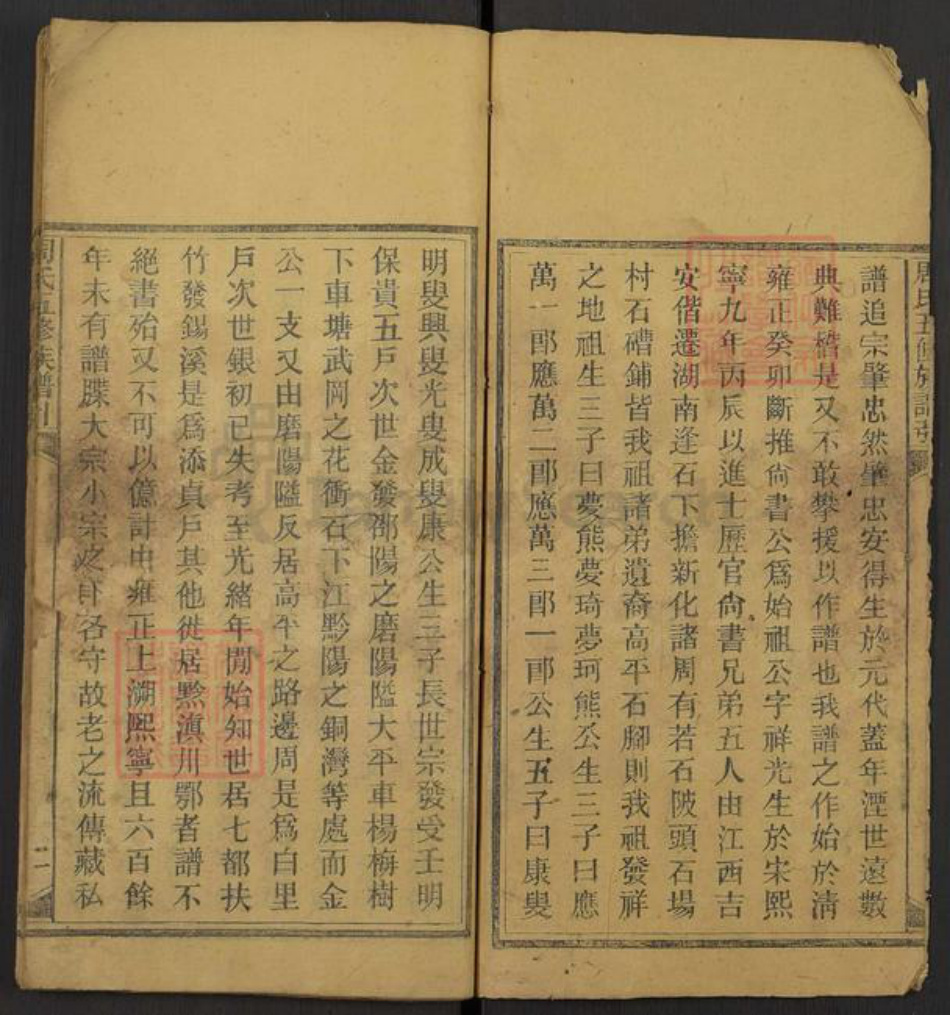 譜追宗肇忠然肇忠安得生於元代蓋年湮世遠數
典難稽是又不敢攀援以作譜也我譜之作始於清
雍正癸卯斷推尙書公爲始祖公字祥光生於宋熙
寧九年丙辰以進士歷官尙書兄弟五人由江西吉
安偕遷湖南逢石下擔新化諸周有若石陂頭石場
村石磧鋪皆我祖諸弟遺裔高平石腳則我祖發祥
之地祖生三子曰夢熊夢琦夢珂熊公生三子曰應
萬一郎應萬二郎應萬三郎一郎公生五子曰康叟
明叟興叟光叟成叟康公生三子長世宗發受壬明
保貴五戶次世金發邵陽之磨陽隘大平車楊梅樹
下車塘武岡之花衝石下江黔陽之銅灣等處而金
公一支又由磨陽隘反居高平之路邊周是爲白里
戶次世銀初已失考至光緒年閒始知世居七都扶
竹發錫溪是爲添貞戶其他徙居黔滇川鄂者譜不
絕書殆又不可以億計由雍正上溯熙寧且六百餘
年未有譜牒大宗小宗之下各守故老之流傳藏私
周氏五修族譜引
二